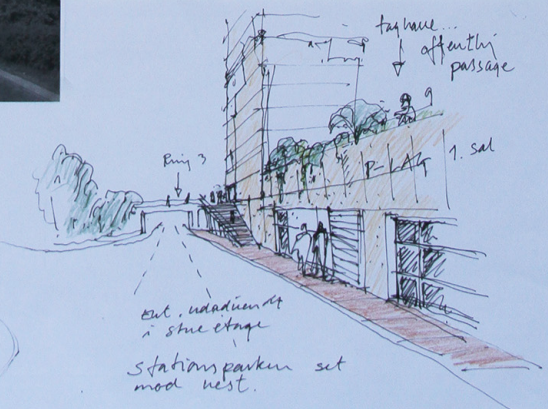 taghave...
offentlig
passage
Ring 3
P-LAG
1. sal
Ent. udadvendt
i stueetage
Stationsparken set
mod vest.